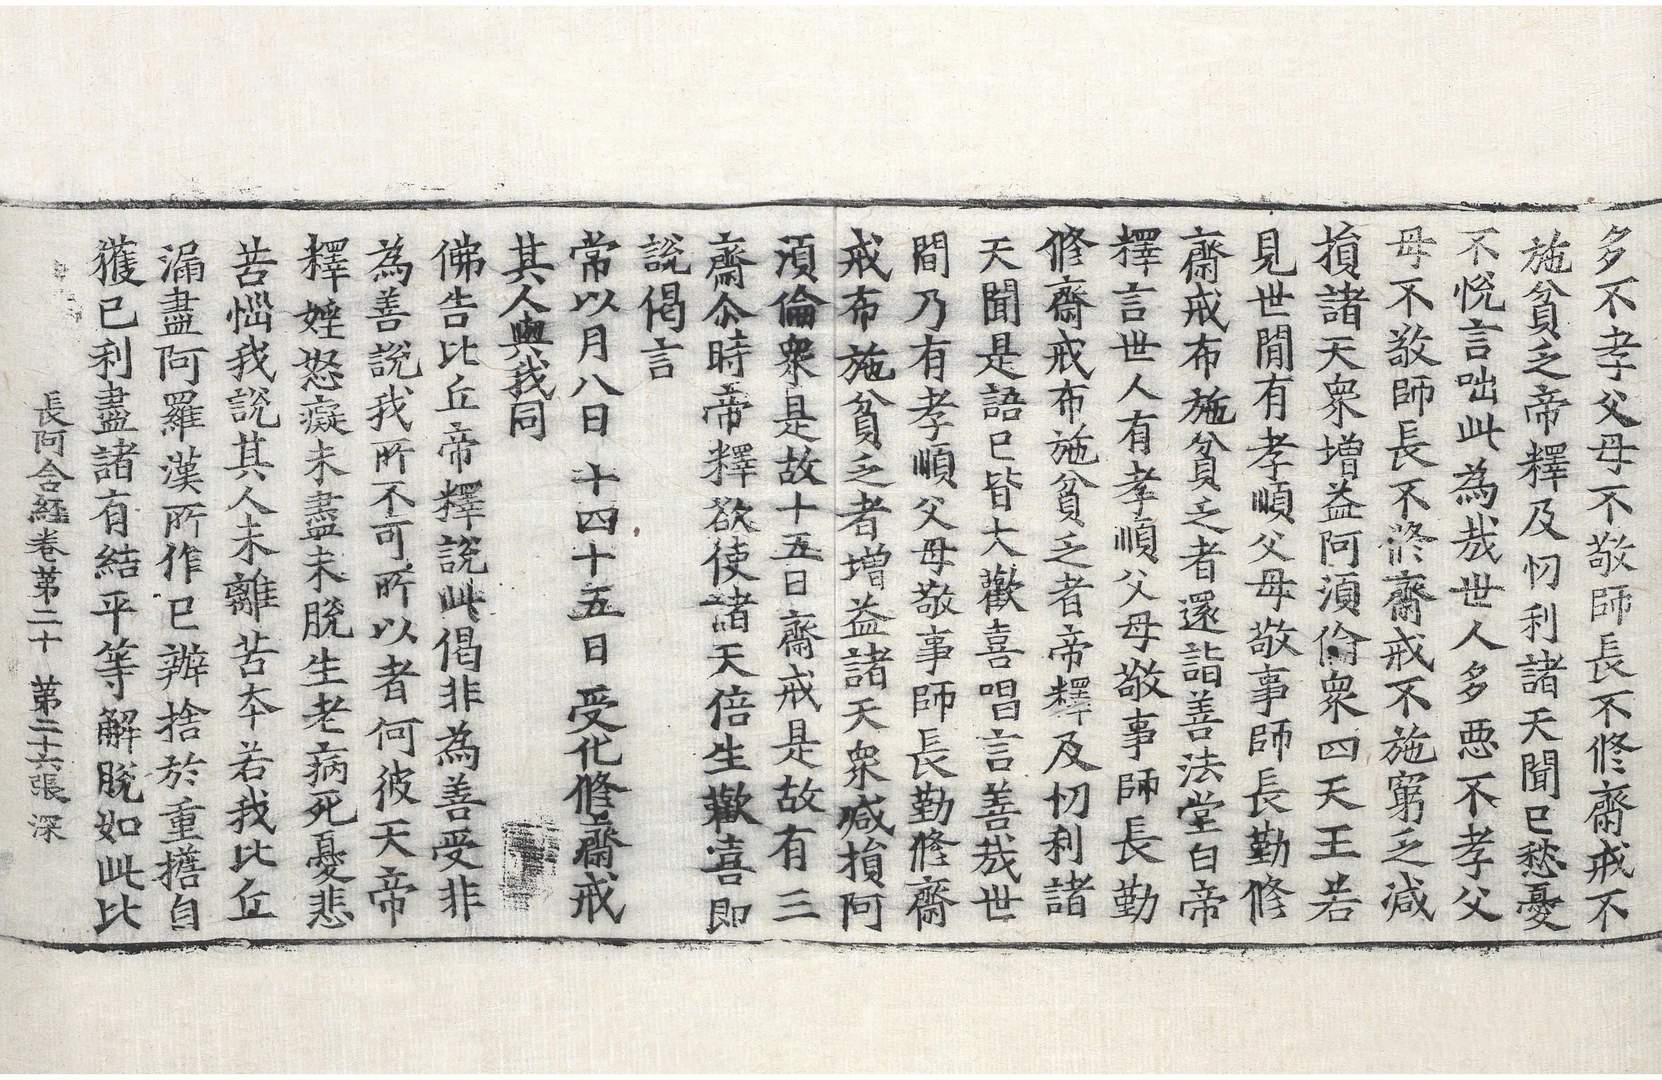 多不孝父母不敬師長不修齋戒不
施貧乏帝釋及忉利諸天聞已愁憂
不悅言咄此為哉世人多惡不孝父
母不敬師長不修齋戒不施窮乏減
損諸天衆增益阿須倫衆四天王若
見世間有孝順父母敬事師長勤修
齋戒布施貧乏者還詣善法堂白帝
釋言世人有孝順父母敬事師長勤
修齋戒布施貧乏者帝釋及忉利諸
天聞是語已皆大歡喜唱言善哉世
間乃有孝順父母敬事師長勤修齋
戒布施貧乏者增益諸天衆減損阿
須倫衆是故十五日齋戒是故有三
齋尒時帝釋欲使諸天倍生歡喜即
說偈言
常以月八日 十四十五日 受化修齋戒
其人與我同
佛告比丘帝釋說此偈非為善受非
為善說我所不可所以者何彼天帝
釋婬怒癡未盡未脫生老病死憂悲
苦惱我說其人未離苦本若我比丘
漏盡阿羅漢所作已辦捨於重擔自
獲已利盡諸有結平等解脫如此比
長阿含経卷第二十 第二十六張 深